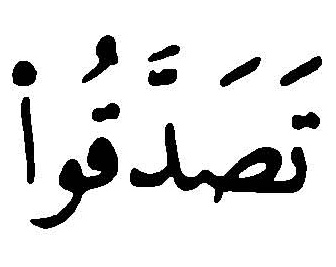 تَصَدَّقُوا۟